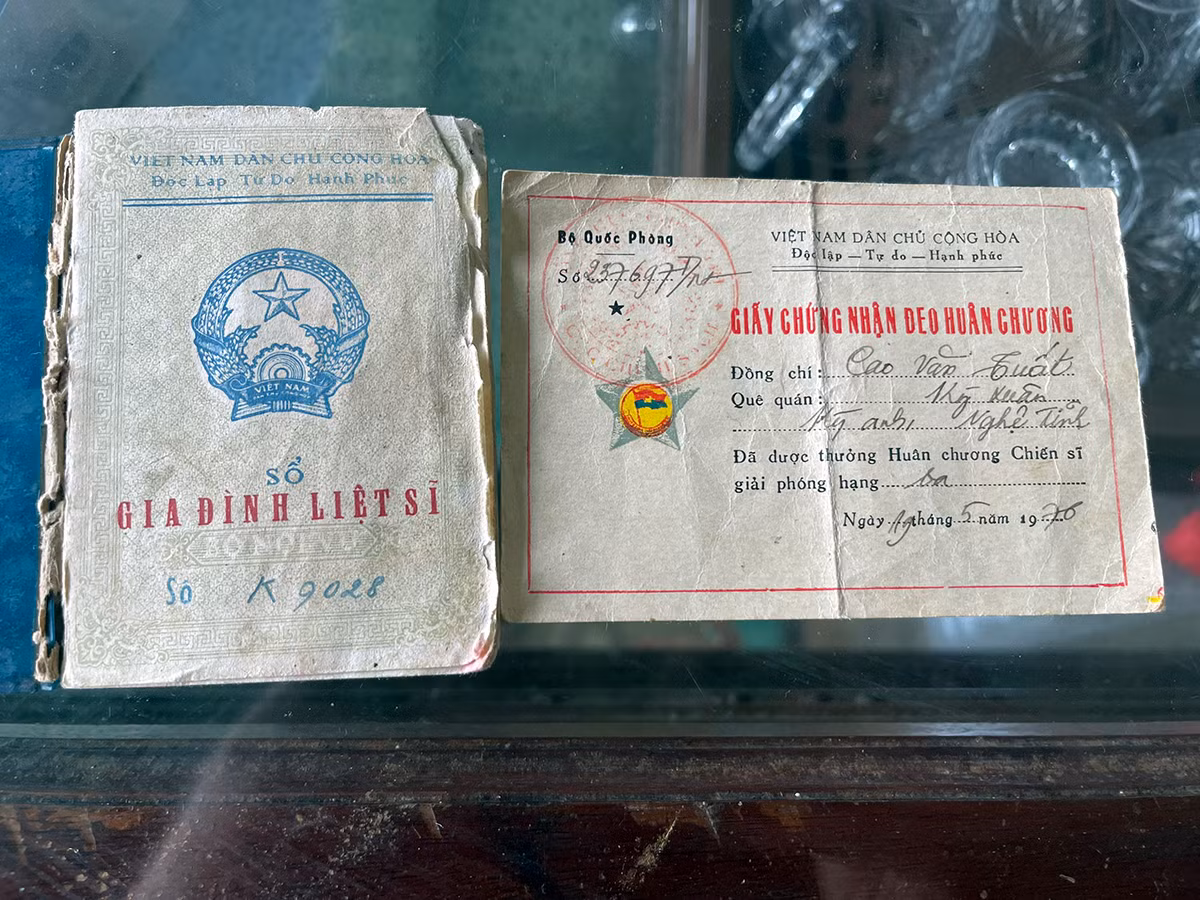 VIỆT NAM DÂN CHỦ CỘNG HÒA
Độc Lập Tự Do Hạnh Phúc
VIỆT NAM
SỔ
GIA ĐÌNH LIỆT SĨ
Số K 9028
Bộ Quốc Phòng
Số 257697
VIỆT NAM DÂN CHỦ CỘNG HÒA
Độc lập — Tự do — Hạnh phúc
GIẤY CHỨNG NHẬN ĐEO HUÂN CHƯƠNG
Đồng chí: Cao Văn Tuất
Quê quán: Kỳ Xuân
Kỳ anh, Nghệ Tĩnh
Đã được thưởng Huân chương Chiến sĩ
giải phóng hạng ba
Ngày 19 tháng 5 năm 1976